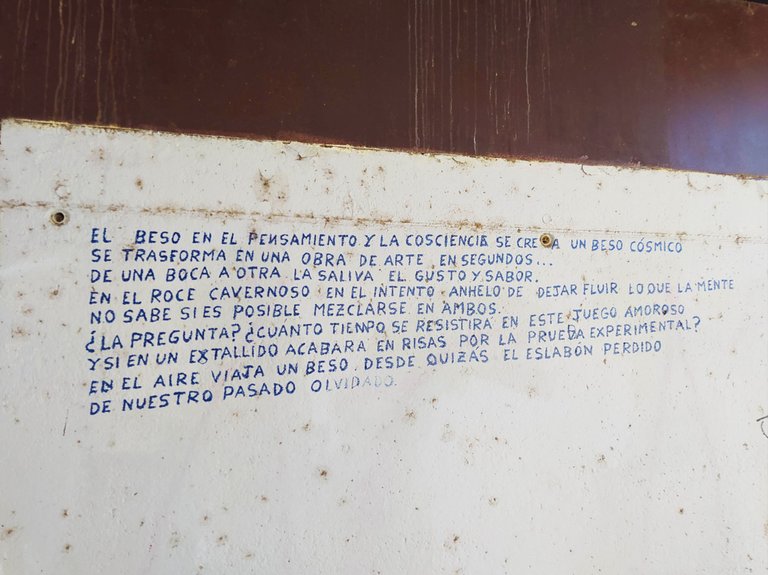 EL BESO EN EL PENSAMIENTO Y LA COSCIENCIA SE CREA UN BESO CÓSMICO
SE TRASFORMA EN UNA OBRA DE ARTE EN SEGUNDOS...
DE UNA BOCA A OTRA LA SALIVA EL GUSTO Y SABOR.
EN EL ROCE CAVERNOSO EN EL INTENTO ANHELO DE DEJAR FLUIR LO QUE LA MENTE
NO SABE SI ES POSIBLE MEZCLARSE EN AMBOS.
¿LA PREGUNTA? ¿CUANTO TIENPO SE RESISTIRA EN ESTE JUEGO AMOROSO
Y SI EN UN EXTALLIDO ACABARA EN RISAS POR LA PRUEBA EXPERIMENTAL?
EN EL AIRE VIAJA UN BESO DESDE QUIZÁS EL ESLABÓN PERDIDO
DE NUESTRO PASADO OLVIDADO.